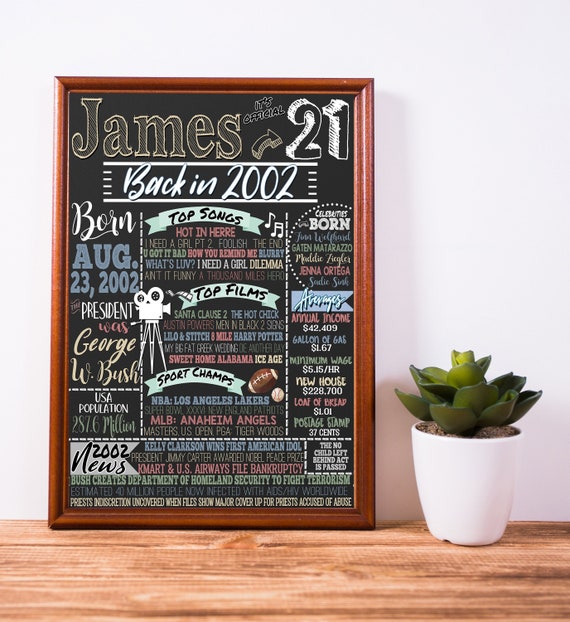 James
IT'S OFFICIAL
21
Back in 2002
Born
AUG.
23, 2002
THE PRESIDENT
was
George
W. Bush
USA
POPULATION
287.6 Million
TOP SONGS
HOT IN HERRE
I NEED A GIRL PT 2 FOOLISH THE END
U GOT IT BAD HOW YOU REMIND ME BLURRY
WHAT'S LUV? I NEED A GIRL DILEMMA
AIN'T IT FUNNY A THOUSAND MILES HERO
TOP FILMS
SANTA CLAUSE 2 THE HOT CHICK
AUSTIN POWERS MEN IN BLACK 2 SIGNS
LILO & STITCH 8 MILE HARRY POTTER
MY BIG FAT GREEK WEDDING DIE ANOTHER DAY
SWEET HOME ALABAMA ICE AGE
SPORT CHAMPS
NBA: LOS ANGELES LAKERS
SUPER BOWL XXXVI: NEW ENGLAND PATRIOTS
MLB: ANAHEIM ANGELS
MASTERS U.S. OPEN PGA: TIGER WOODS
CELEBRITIES
BORN
Finn Wolfhard
GATEN MATARAZZO
Maddie Ziegler
JENNA ORTEGA
Sadie Sink
Averages
ANNUAL INCOME
$42,409
GALLON OF GAS
$1.67
MINIMUM WAGE
$5.15/HR
NEW HOUSE
$228,700
LOAF OF BREAD
$1.01
POSTAGE STAMP
37 CENTS
2002
News
KELLY CLARKSON WINS FIRST AMERICAN IDOL
PRESIDENT JIMMY CARTER AWARDED NOBEL PEACE PRIZE
KMART & U.S. AIRWAYS FILE BANKRUPTCY
THE NO
CHILD LEFT
BEHIND ACT
IS PASSED
BUSH CREATES DEPARTMENT OF HOMELAND SECURITY TO FIGHT TERRORISM
ESTIMATED 40 MILLION PEOPLE NOW INFECTED WITH AIDS/HIV WORLDWIDE
PRIESTS INDISCRETION UNCOVERED WHEN FILES SHOW MAJOR COVER UP FOR PRIESTS ACCUSED OF ABUSE